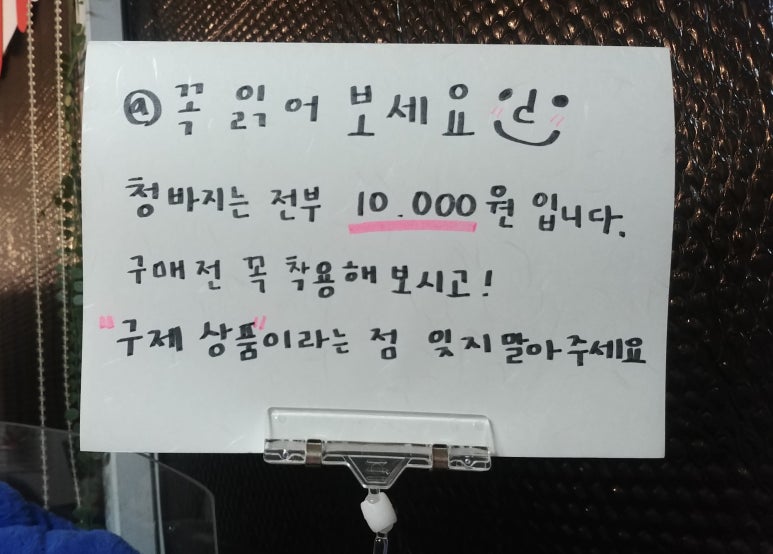 ⓐ 꼭 읽어 보세요
청바지는 전부 10.000원 입니다.
구매전 꼭 착용해보시고!
"구제 상품"이라는 점 잊지말아주세요